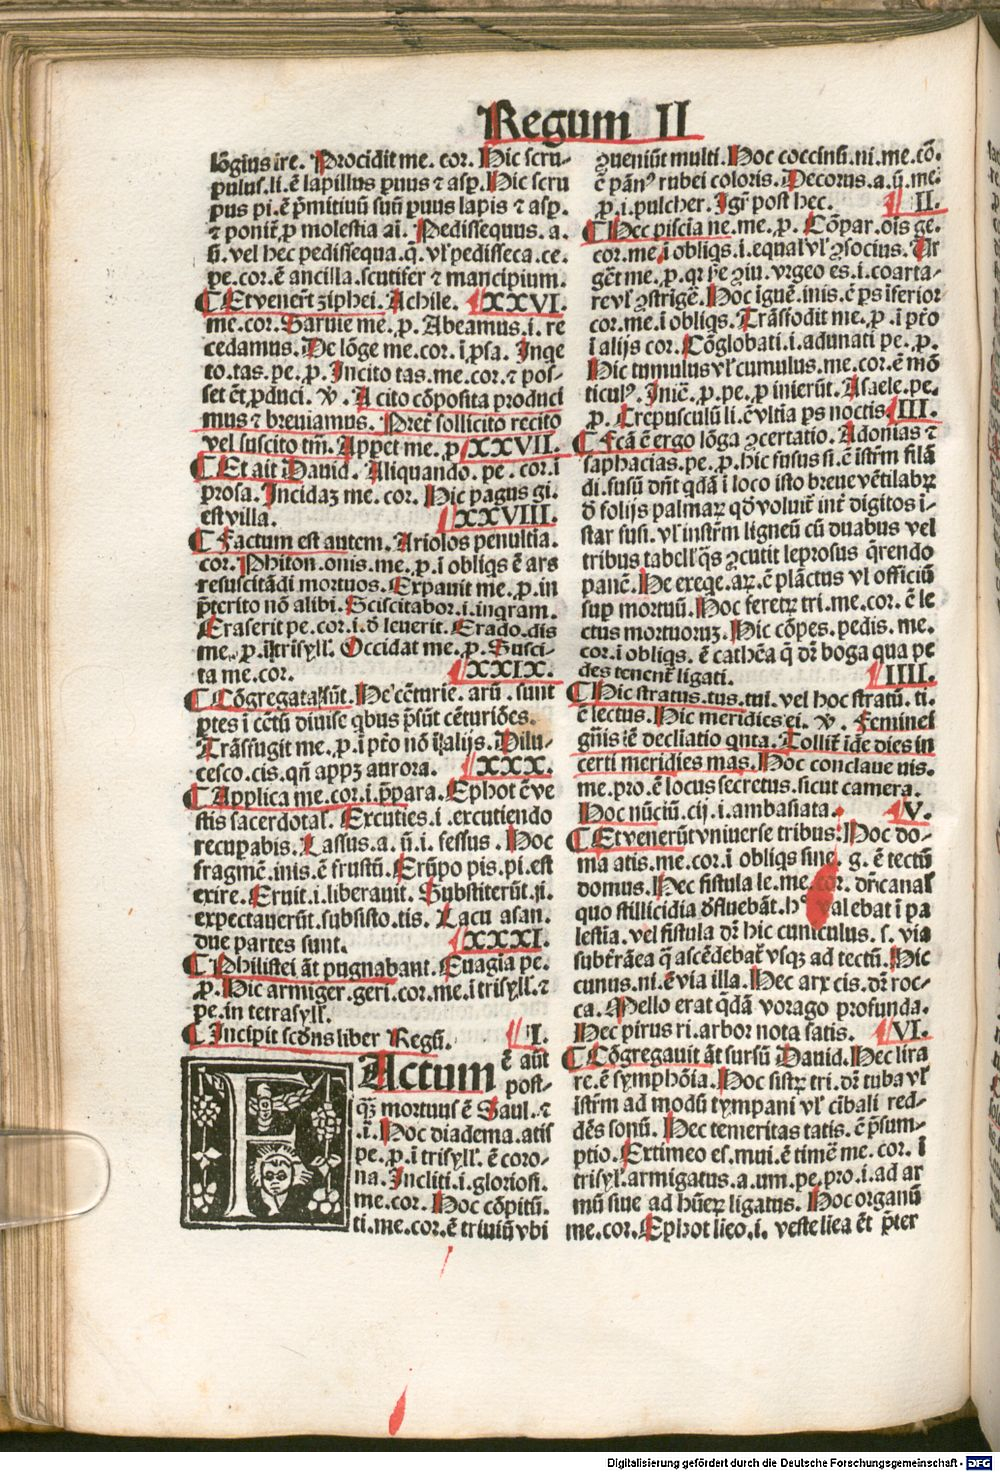 Regum II
lōgius ire. Procidit me. cor. Hic scru-
pulus. li. ē lapillus puus ⁊ asp. Hic scru
pus pi. ē pꝛmitiuū suū puus lapis ⁊ asp.
⁊ poniť ꝑ molestia ai. Pedissequus. a.
ū. vel hec pedissequa. q̄. vl' pedisseca. ce.
pe. cor. ē ancilla. scutifer ⁊ mancipium.
¶ Et venerūt ziphei. Achile. ¶ XXVI.
me. cor. Saruie me. ꝓ. Abeamus. i. re
cedamus. De lōge me. cor. ī ꝓsa. Inqe
to. tas. pe. ꝓ. Incito tas. me. cor. ⁊ pos-
set ēt ꝓduci. v̄. A cito cōposita produci
mus ⁊ breuiamus. Preť sollicito recito
vel suscito tm̄. Appet me. ꝓ ¶ XXVII.
¶ Et ait Dauid. Aliquando. pe. cor. i
prosa. Incidaꝫ me. cor. Hic pagus gi.
est villa. ¶ XXVIII.
¶ Factum est autem. Ariolos penultīa.
cor. Phiton. onis. me. ꝓ. ī obliqs ē ars
resuscitādi mortuos. Expauit me. ꝓ. in
p̄terito nō alibi. Sciscitabor. i. inqram.
Eraserit pe. cor. i. ꝺ leuerit. Erado. dis
me. ꝓ. ī trisyll. Occidat me. ꝓ. Susci-
ta me. cor. ¶ XXIX.
¶ Cōgregata sūt. He cēturie. arū. sunt
ꝑtes ī cētū diuise qbus p̄sūt cēturiōes.
Trāsfugit me. ꝓ. ī p̄to nō ī alijs. Dilu-
cesco. cis. qn̄ appꝫ aurora. ¶ XXX.
¶ Applica me. cor. i. p̄para. Ephot ē ve
stis sacerdotal'. Excuties. i. excutiendo
recupabis. Lassus. a. ū. i. fessus. Hoc
fragmē. inis. ē frustū. Erūpo pis. pi. est
exire. Eruit. i. liberauit. Substiterūt. i.
expectauerūt. subsisto. tis. Lacu asan.
due partes sunt. ¶ XXXI.
¶ Philistei āt pugnabant. Euagīa pe.
ꝓ. Hic armiger. geri. cor. me. ī trisyll. ⁊
pe. in tetrasyll.
¶ Incipit scōns liber Regū. ¶ I.
FActum ē aūt
post-
qꝫ mortuus ē Saul. ⁊
.ī. Hoc diadema. atis
pe. ꝓ. ī trisyll. ē coro-
na. Incliti. i. gloriosi.
me. cor. Hoc cōpitū.
ti. me. cor. ē triuiū vbi
ꝯueniūt multi. Hoc coccinū. ni. me. cō.
ē pān⁹ rubei coloris. Decorus. a. ū. me.
ꝓ. i. pulcher. Igr̄ post hec. ¶ II.
¶ Hec piscina ne. me. ꝓ. Cōpar. ois ge.
cor. me. ī obliqs. i. equal' vl' ꝯsocius. Ur
gēt me. ꝓ. qr fꝛe ꝯiu. vrgeo es. i. coarta-
re vl' ꝯstrigē. Hoc īguē. inis. ē ps īferior
cor. me. ī obliqs. Trāsfodit me. ꝓ. ī p̄to
ī alijs cor. Cōglobati. i. adunati pe. ꝓ.
Hic tumulus vl' cumulus. me. cor. ē mō
ticul⁹. Iniē. ꝓ. pe. ꝓ inierūt. Asaele. pe.
ꝓ. Crepusculū li. ē vltīa ps noctis. ¶ III.
¶ Fcā ē ergo lōga ꝯcertatio. Adonias ⁊
saphacias. pe. ꝓ. hic fusus si. ē istr̄m filā
di. fusū dn̄t qdā ī loco isto breue vētilabꝝ
ꝺ folijs palmaꝝ qꝺ voluiť inť digitos ī-
star fusi. vl' instr̄m ligneū cū duabus vel
tribus tabell' q̄s ꝯcutit leprosus qrendo
panē. He exeqe. aꝝ. ē plāctus vl officiū
sup mortuū. Hoc feretꝝ tri. me. cor. ē le
ctus mortuoruꝫ. Hic cōpes. pedis. me.
cor. ī obliqs. ē cathēa q̄ dꝛ boga qua pe
des tenenť ligati. ¶ IIII.
¶ Hic stratus. tus. tui. vel hoc stratū. ti.
ē lectus. Hic meridies ei. v̄. Feminei
gn̄is īē decliatio qnta. Tolliť īde dies in
certi meridies mas. Hoc conclaue uis.
me. pro. ē locus secretus. sicut camera.
Hoc nūciū. cij. i. ambasiata. ¶ V.
¶ Et venerūt vniuerse tribus. Hoc do-
ma atis. me. cor. ī obliqs siue. g. ē tectū
domus. Hec fistula le. me. cor. dr̄ canal'
quo stillicidia ꝺfluebāt. h⁹ valebat ī pa
lestīa. vel fistula dꝛ hic cuniculus. s. via
subťrāea q̄ ascēdebať vsqꝫ ad tectū. Hic
cunus. ni. ē via illa. Hec arx cis. dꝛ roc-
ca. Mello erat qdā vorago profunda.
Hec pirus ri. arbor nota satis. ¶ VI.
¶ Cōgregauit āt sursū Dauid. Hec lira
re. ē symphōia. Hoc sistꝝ tri. dꝛ tuba vl'
istr̄m ad modū tympani vl' cībali red-
dēs sonū. Hec temeritas tatis. ē p̄sum-
ptio. Extimeo es. mui. ē timē me. cor. ī
trisyl'. armigatus. a. um. pe. pro. i. ad ar
mū siue ad hūeꝝ ligatus. Hoc organū
me. cor. Ephot lieo. i. veste liea ēt p̄ter
Digitalisierung gefördert durch die Deutsche Forschungsgemeinschaft - DFG